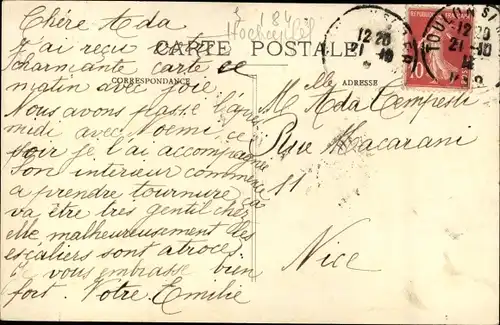 Chère Ada
J'ai reçu votre
charmante carte ce
matin avec joie.
Nous avons passé l'après
midi avec Noemi ce
soir je l'ai accompagnée
Son interieur commence
a prendre tournure ça
va être très gentil chez
elle malheureusement les
escaliers sont atroces.
Je vous embrasse bien
fort. Votre Emilie
184
CARTE POSTALE
CORRESPONDANCE
ADRESSE
Melle Ada Tempesti
Rue Macarani
11
Nice
12 20
21 - 10
TOULON S
12 20
21 - 10
12
VAR
10